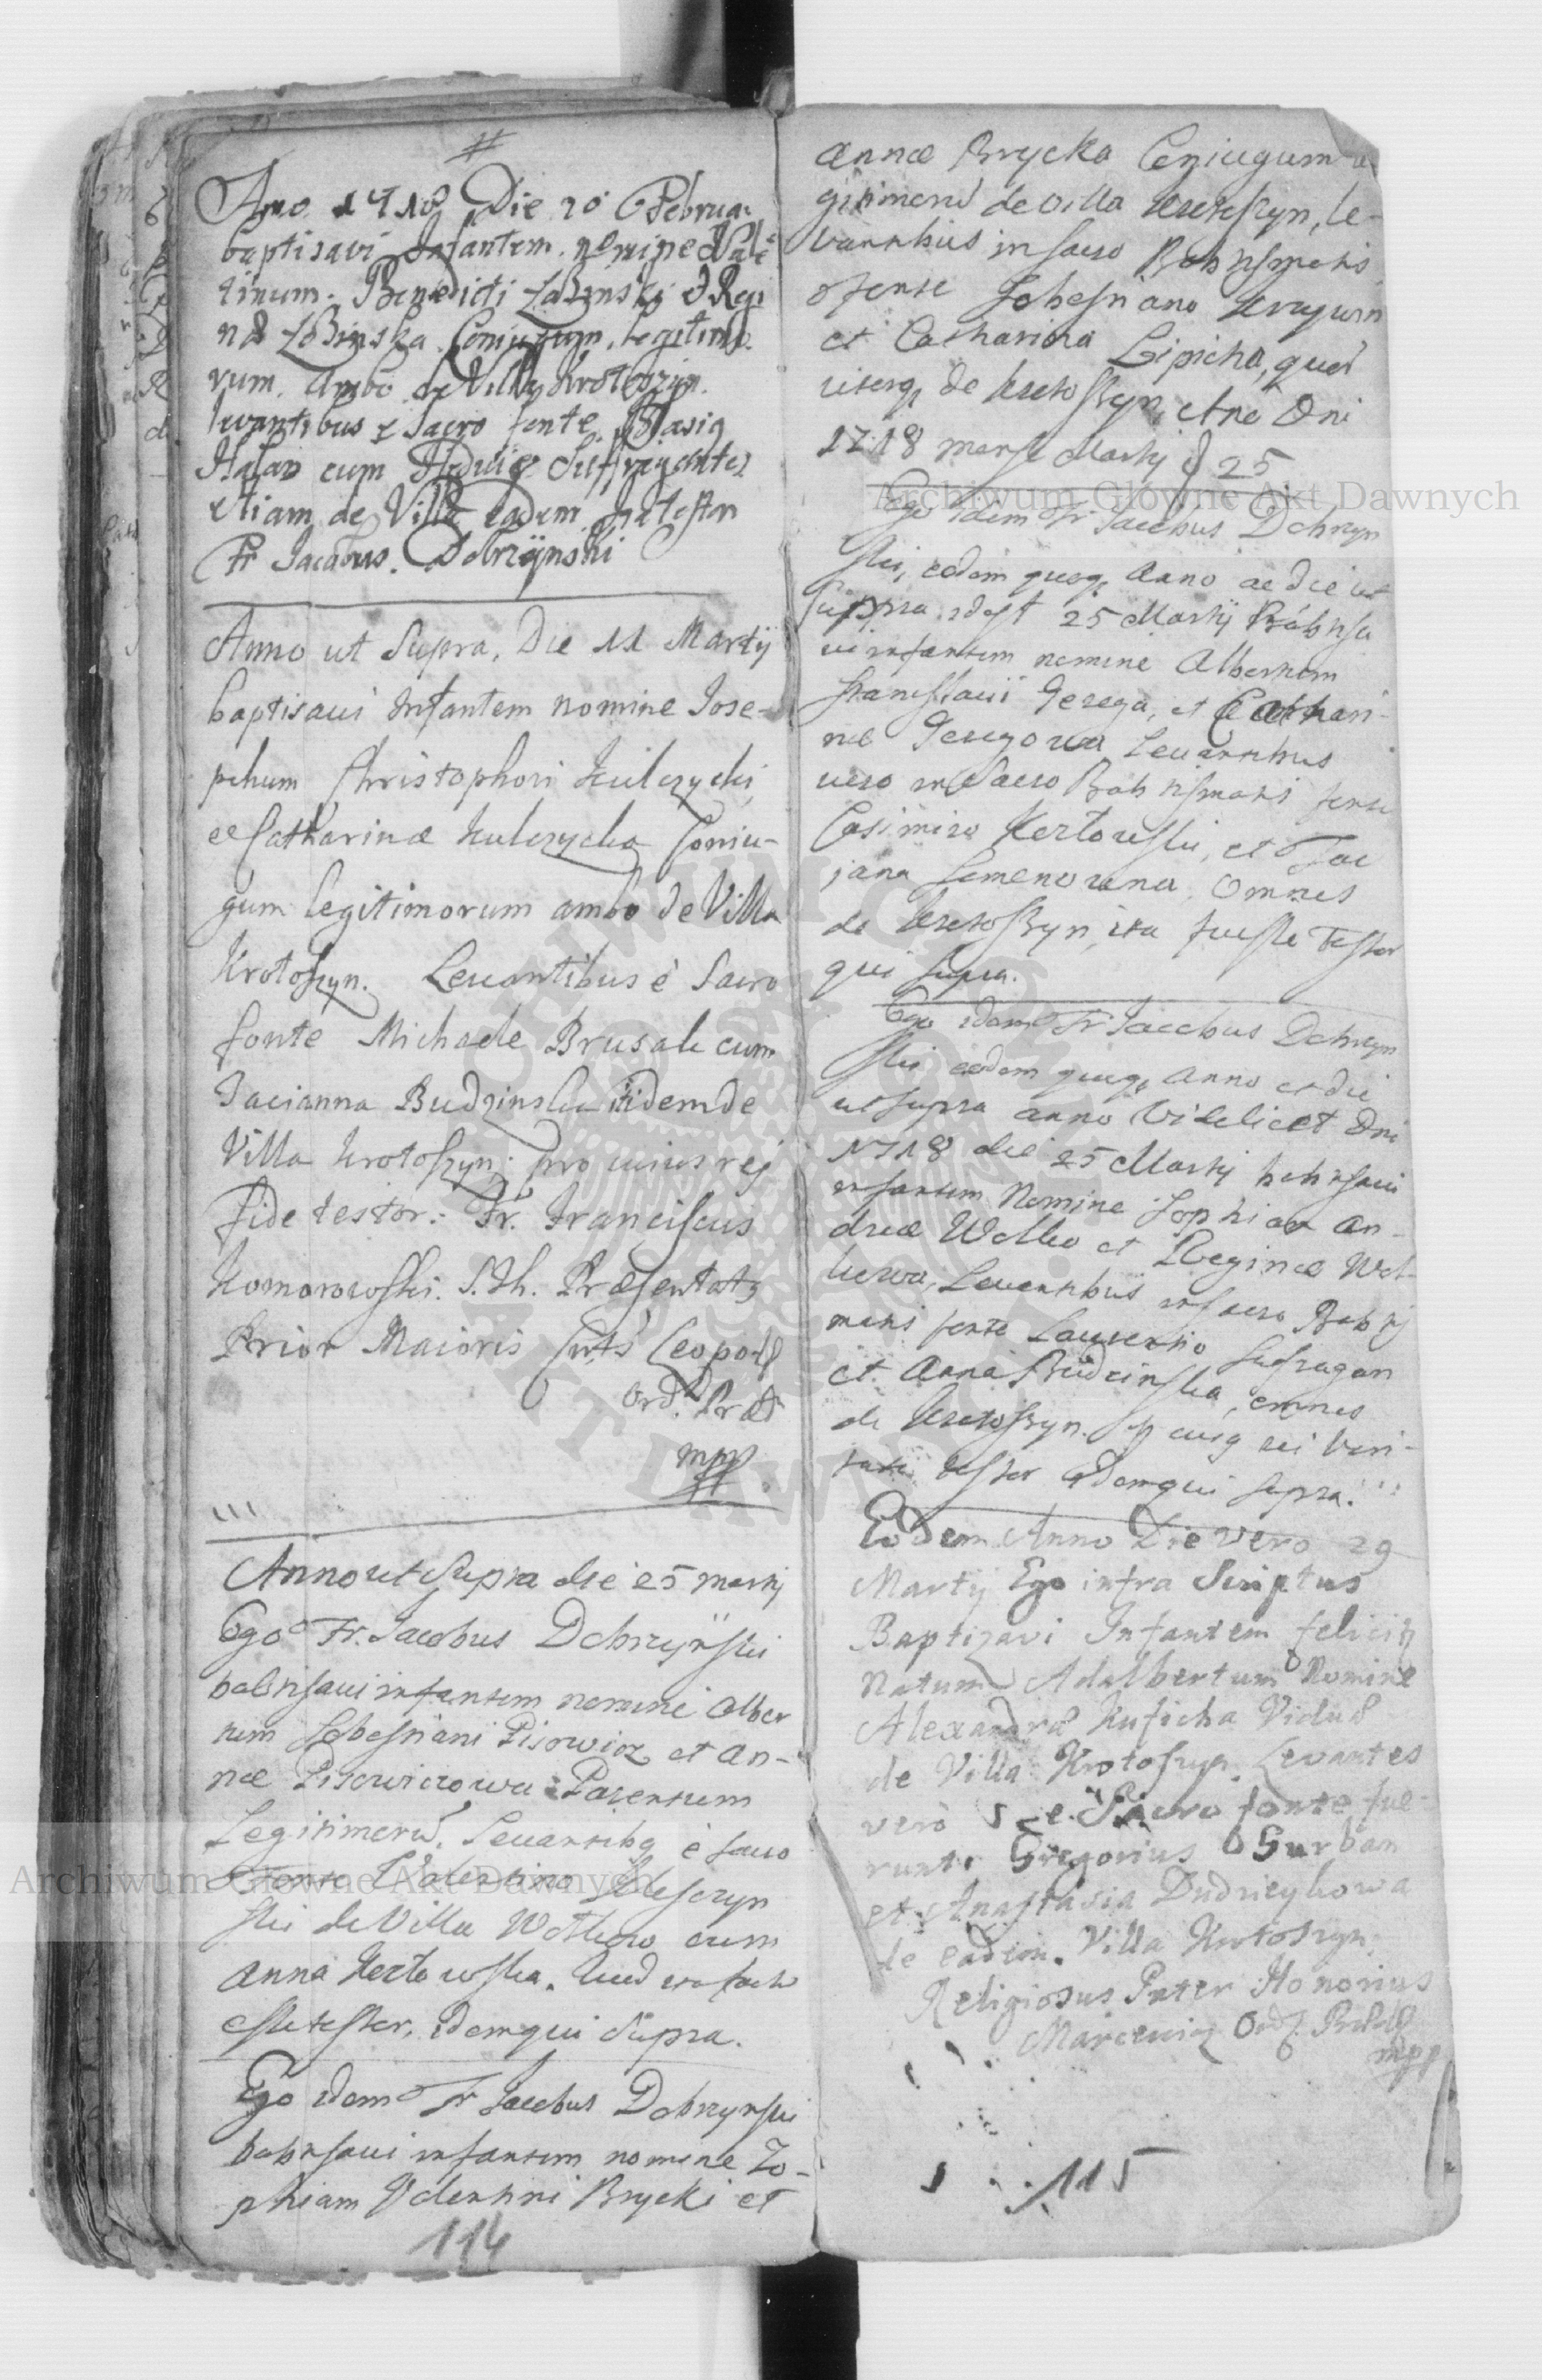 #
Anno 1718 Die 20 Februar
baptisavi Infantem nomine Vale
tinum. Benedicti Łobinski & Regi
næ Łobinska Coniugum, legitimo
rum. Ambo de Villa Krotoszyn.
levantibus e Sacro fonte Blasio
cum Hedvige
etiam de Villa eadem
Fr Jacobus. Dobrzÿnski
Anno ut Supra, Die 11 Martij
baptisavi Infantem nomine Jose-
phum Christophori Kulczycki
et Catharinæ Kulczycka Coniu-
gum legitimorum ambo de Villa
Krotoszyn. Levantibus è Sacro
fonte Michaele Brusak cum
Tacianna Budzinska itidem de
Villa Krotoszyn; pro cuius rej
fide testor: Fr. Franciscus
Komorowski. S. Th. Præsentatg
Prior Maioris Cnts Leopol
Ord. Præd
mpp
Anno ut Supra die 25 martij
Ego Fr. Jacobus Dobrzyński
babtisavi infantem nomine Alber
tum Sebestiani Pisowicz et An-
næ Pisowiczowa Parentum
Legitimorū, Levantibg è sacro
fonte Valentino
ski de Villa Wolkow cum
Anna Kertowska. Quod ita
esse testor, idem qui Supra.
Ego idem Fr Jacobus Dobrzynski
babtisavi infantem nomine Zo-
phiam Valentini Brycki et
114
Annæ Brycka Coniugum le
gitimorū de villa Krotoszyn, le-
vantibus in sacro Babtismatis
fonte Sebestiano
et Catharina Lipicha,
uterq de Krotoszyn, Ano Dni
1718 mense Martij d 25
Ego idem Fr Jacobus Dobrzyn
ski, eodem quoq Anno ac die ut
suppra idest 25 Martij Babtisa
vi infantem nomine Albertum
Stanislaii Gerega, et Cathari-
næ Geregowa Levantibus
vero in Sacro Babtismatis fonte
Casimiro Kertowski, et Tac
jana Semenowna Omnes
de Krotoszyn, ita fuisse testor
qui supra.
Ego idem Fr Jacobus Dobrzyn
ski eodem quoq Anno et die
ut supra anno Videlicet Dni
1718 die 25 Martij babtisavi
infantem Nomine Sophiam An-
dreæ Wolko et Reginæ Wol-
kowa, Levantibus in sacro Babtis
matis fonte Laurentio Sufragan
et Anna Budzinska, omnes
de Krotoszyn. In cuig rei veri-
tate testor Idem qui supra.
Eodem Anno Die vero 29
Martij Ego infra Scriptus
Baptizavi Infantem
Natum Adalbertum Nomine
Alexandræ Kusicha Viduæ
de Villa Krotoszyn. Levantes
verò e Sacro fonte fue-
runt Gregorius Gurban
et Anastasia Dudricykowa
de eadem Villa Krotoszyn
Religiosus Pater Honorius
Marcewicz Ord. Præd
mpp
115
Archiwum Główne Akt Dawnych
Archiwum Główne Akt Dawnych